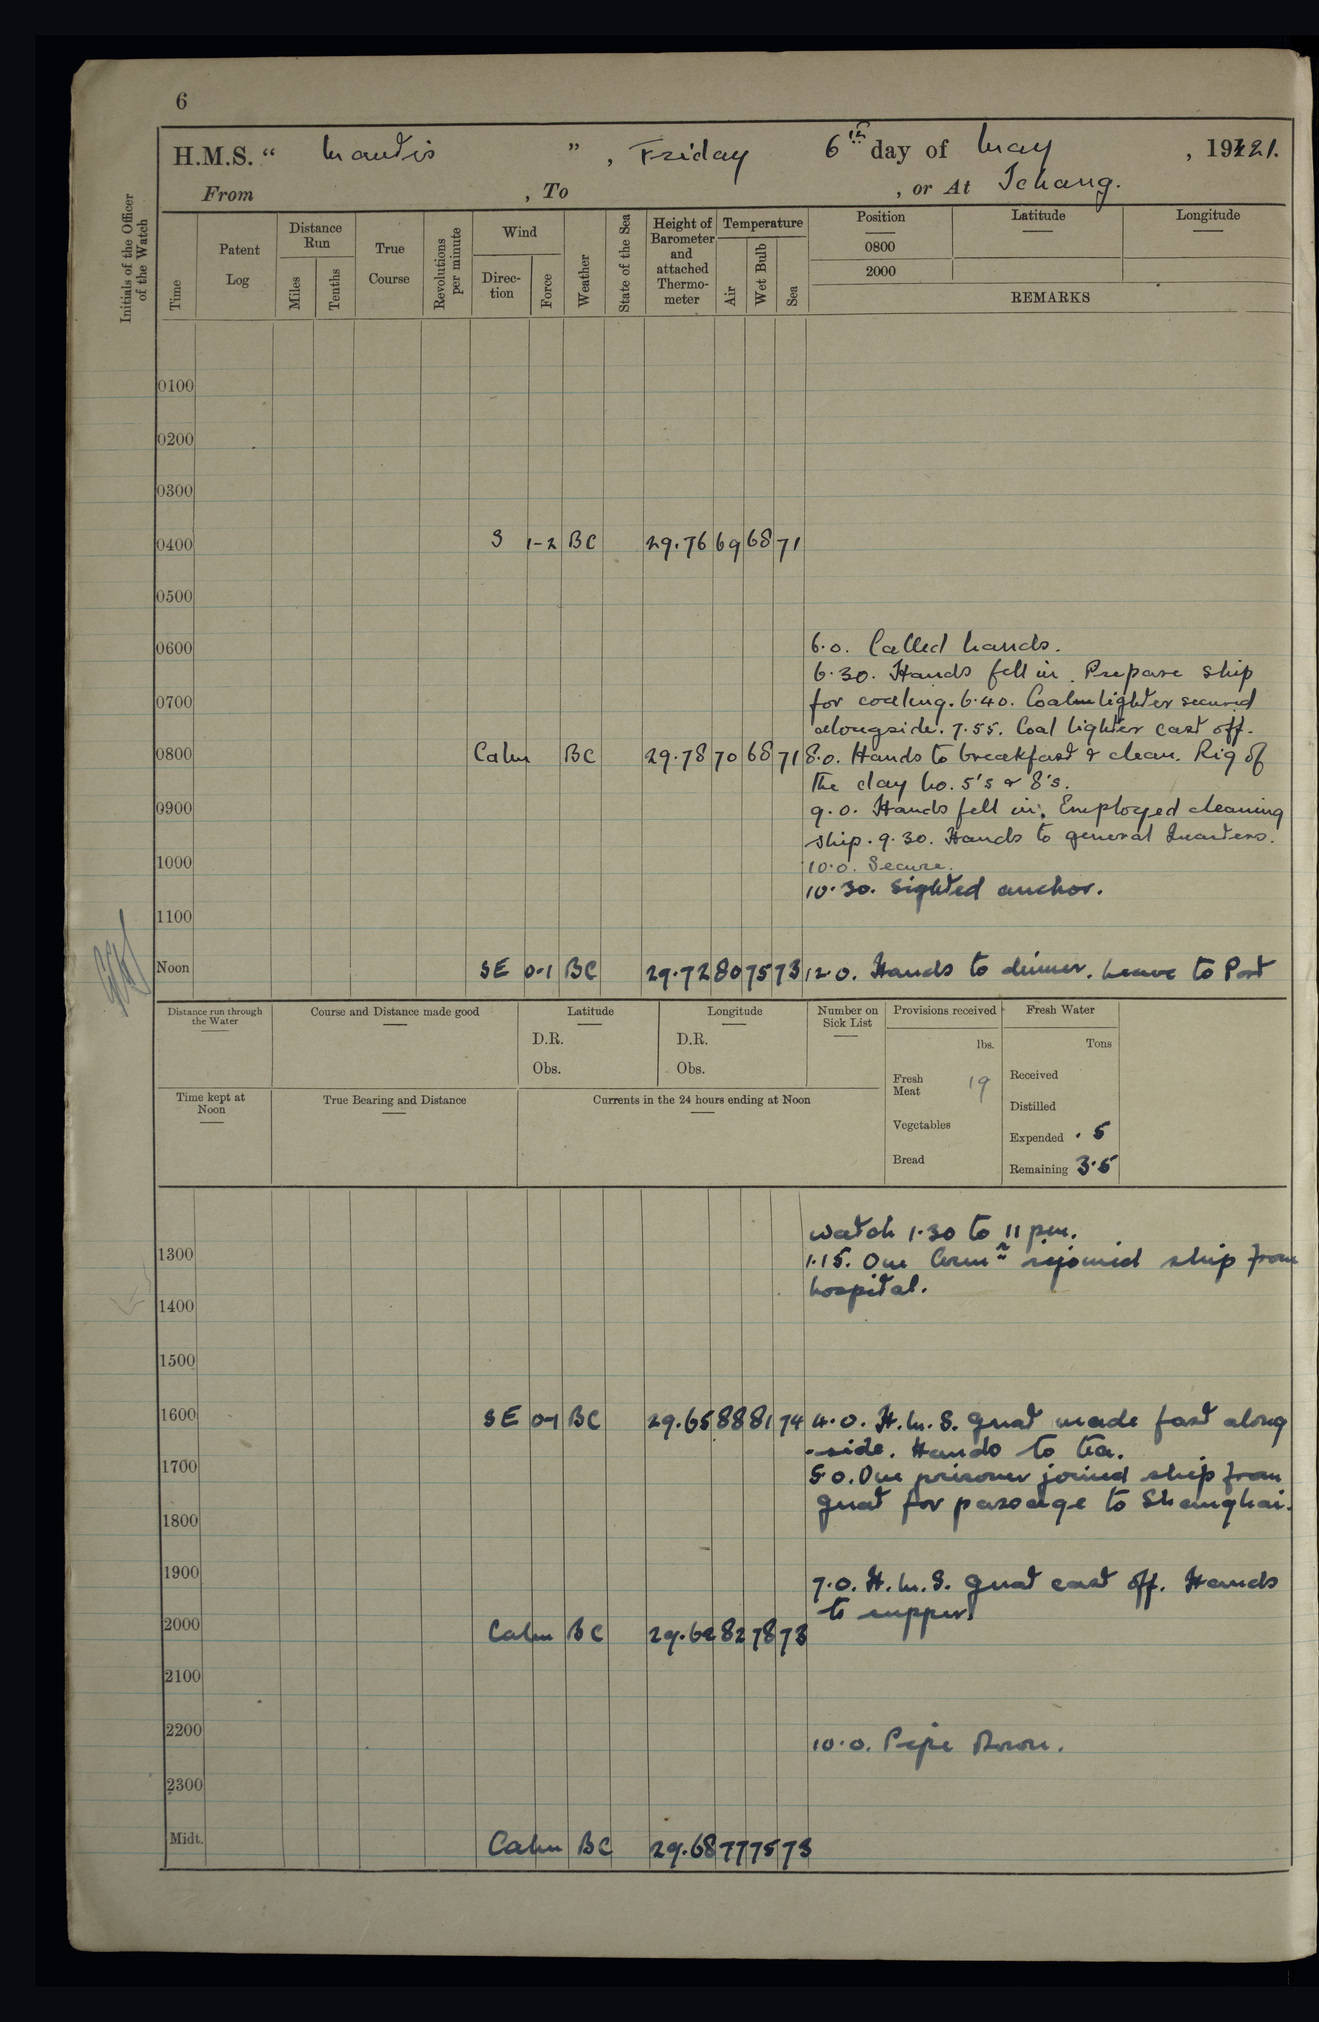 6
H.M.S. “ Mantis ” , Friday 6th day of May , 1921.
From , To , or At Ichang.
Initials of the Officer of the Watch
Time
Patent Log
Distance Run
Miles
Tenths
True Course
Revolutions per minute
Wind
Direc-tion
Force
Weather
State of the Sea
Height of Barometer and attached Thermo-meter
Temperature
Air
Wet Bulb
Sea
Position Latitude Longitude
0800
2000
REMARKS
0100
0200
0300
0400 S 1-2 BC 29.76 69 68 71
0500
0600 6.0. Called hands.
6.30. Hands fell in. Prepare ship
0700 for coaling. 6.40. Coal lighter secured
alongside. 7.55. Coal lighter cast off.
0800 Calm BC 29.78 70 68 71 8.0. Hands to breakfast & clean. Rig of
the day No. 5's & 8's.
0900 9.0. Hands fell in. Employed cleaning
ship. 9.30. Hands to general Quarters.
1000 10.0. Secure.
10.30. Sighted anchor.
1100
Noon SE 0-1 BC 29.72 80 75 73 12.0. Hands to dinner. Leave to Port
Distance run through the Water
Course and Distance made good
Latitude
D.R.
Obs.
Longitude
D.R.
Obs.
Number on Sick List
Provisions received
lbs.
Fresh Meat 19
Vegetables
Bread
Fresh Water
Tons
Received
Distilled
Expended . 5
Remaining 3.5
Time kept at Noon
True Bearing and Distance
Currents in the 24 hours ending at Noon
watch 1.30 to 11 pm.
1300 1.15. One rejoined ship from
hospital.
1400
1500
1600 SE 0-1 BC 29.65 88 81 74 4.0. H.M.S. Gnat made fast along
-side. Hands to tea.
1700 5.0. One prisoner joined ship from
Gnat for passage to Shanghai.
1800
1900 7.0. H.M.S. Gnat cast off. Hands
to supper.
2000 Calm BC 82 78 73
2100
2200 10.0. Pipe Down.
2300
Midt. Calm BC 29.68 77 75 73